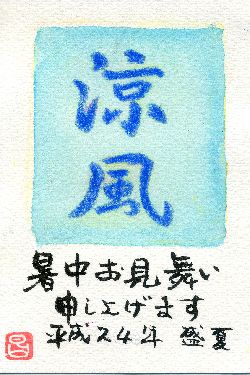 涼風
暑中お見舞い
申し上げます
平成24年 盛夏